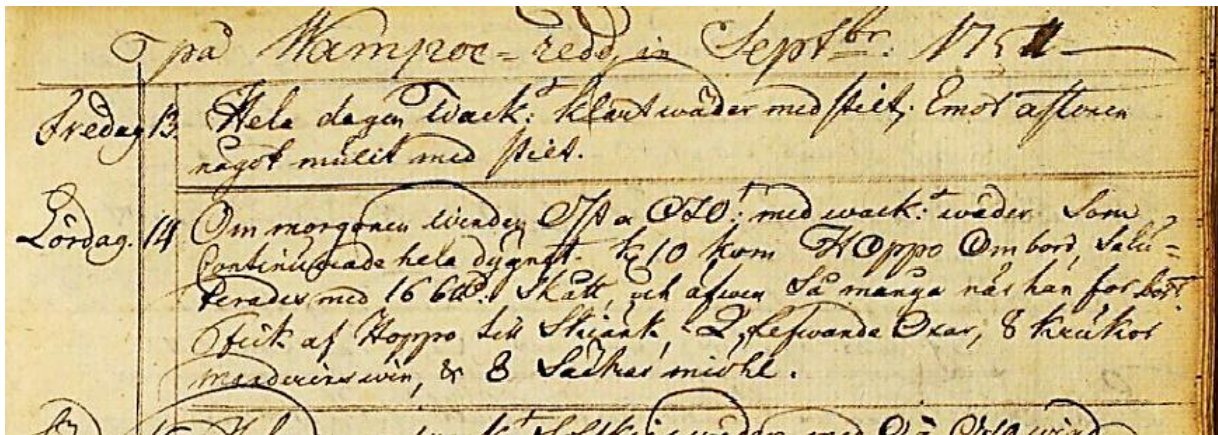 på Wampoe=redd, in Septbr: 1751
Fredag 13 Hela dagen wack:t klart wäder med stilt; Emot aftonen
något mulit med stilt.
Lördag. 14 Om morgonen winden Ost a OSO:t med wack:t wäder Som
Continuerade hela dygnet. kl 10 kom Hoppo Om bord, Salu=
terades med 16 Skått, och äfwen Så många när han for bort
Fick af Hoppo till Skiänk, 2 lefwande Oxar, 8 krukor
mandarins win, & 8 Säckar miöhl.